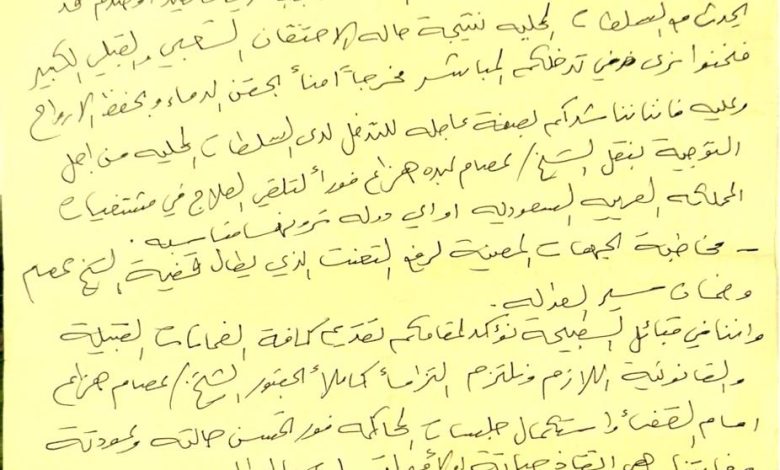 الحدث مع السلطات المحليه نتيجة حاله الاحتقان الشعبي والقبلي الكبير
فنحنوا نرى في تدخلكم المباشر مخرجاً امناً لحقن الدماء وبحفظ الارواح
وعليه فاننا نناشدكم بصفة عاجله للتدخل لدى السلطات المحليه من اجل
التوجية بنقل الشيخ / عصام عبده هزاع فوراً لتلقي العلاج في مستشفيات
المملكه العربيه السعوديه او اي دوله ترونها مناسبه .
- مخاطبة الجهات المعنية لرفع التعنت الذي يطال قضية الشيخ عصام
وضمان سير العداله .
واننا في قبائل الصبيحة نؤكد لمقامكم تقديم كافة الضمانات القبلية
والقانونية اللازم ونلتزم التزاماً كاملاً بحضور الشيخ / عصام هزاع
امام القضاء واستكمال جلسات المحاكمه فور تحسن حالته وعودته
هي انقاذ حياتة